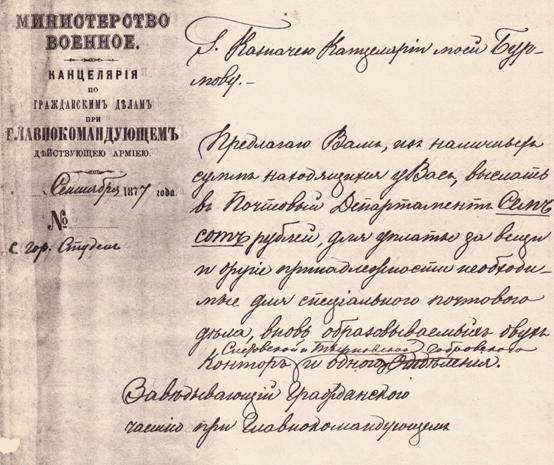 МИНИСТЕРСТВО
ВОЕННОЕ.
КАНЦЕЛЯРІЯ
ПО
ГРАЖДАНСКИМЪ ДѢЛАМЪ
ПРИ
ГЛАВНОКОМАНДУЮЩЕМЪ
ДѢЙСТВУЮЩЕЮ АРМІЕЮ.
Сентября 1877 года.
№
с гор. Студен
Г. Казначею Канцеляріи моей Бур-
мову.-
Предлагаю Вамъ, изъ наличныхъ
суммъ находящихся у Васъ, выслать
въ Почтовый Департаментъ Семь
сотъ рублей, для уплаты за вещи
и другіе принадлежности необходи-
мые для спеціальнаго почтоваго
дѣла, вновь образовываемыхъ двухъ
Систовской и Тырновской Габровскаго
Конторъ и одного Отдѣленія.
Завѣдывающій Гражданскою
частію при Главнокомандующемъ